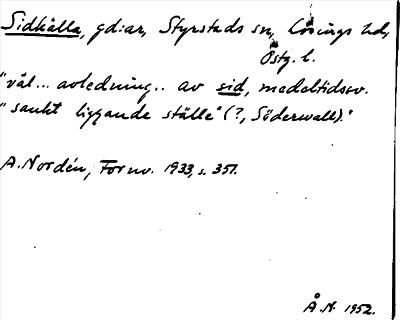 Sidkälla, gd:ar, Styrstads sn, Lösings hd,
Östg. l.
"väl... avledning.. av sid, medeltidssv.
"sankt liggande ställe" (?, Söderwall)."
A. Nordén, Fornv. 1933, s. 351.
Å. N. 1952.